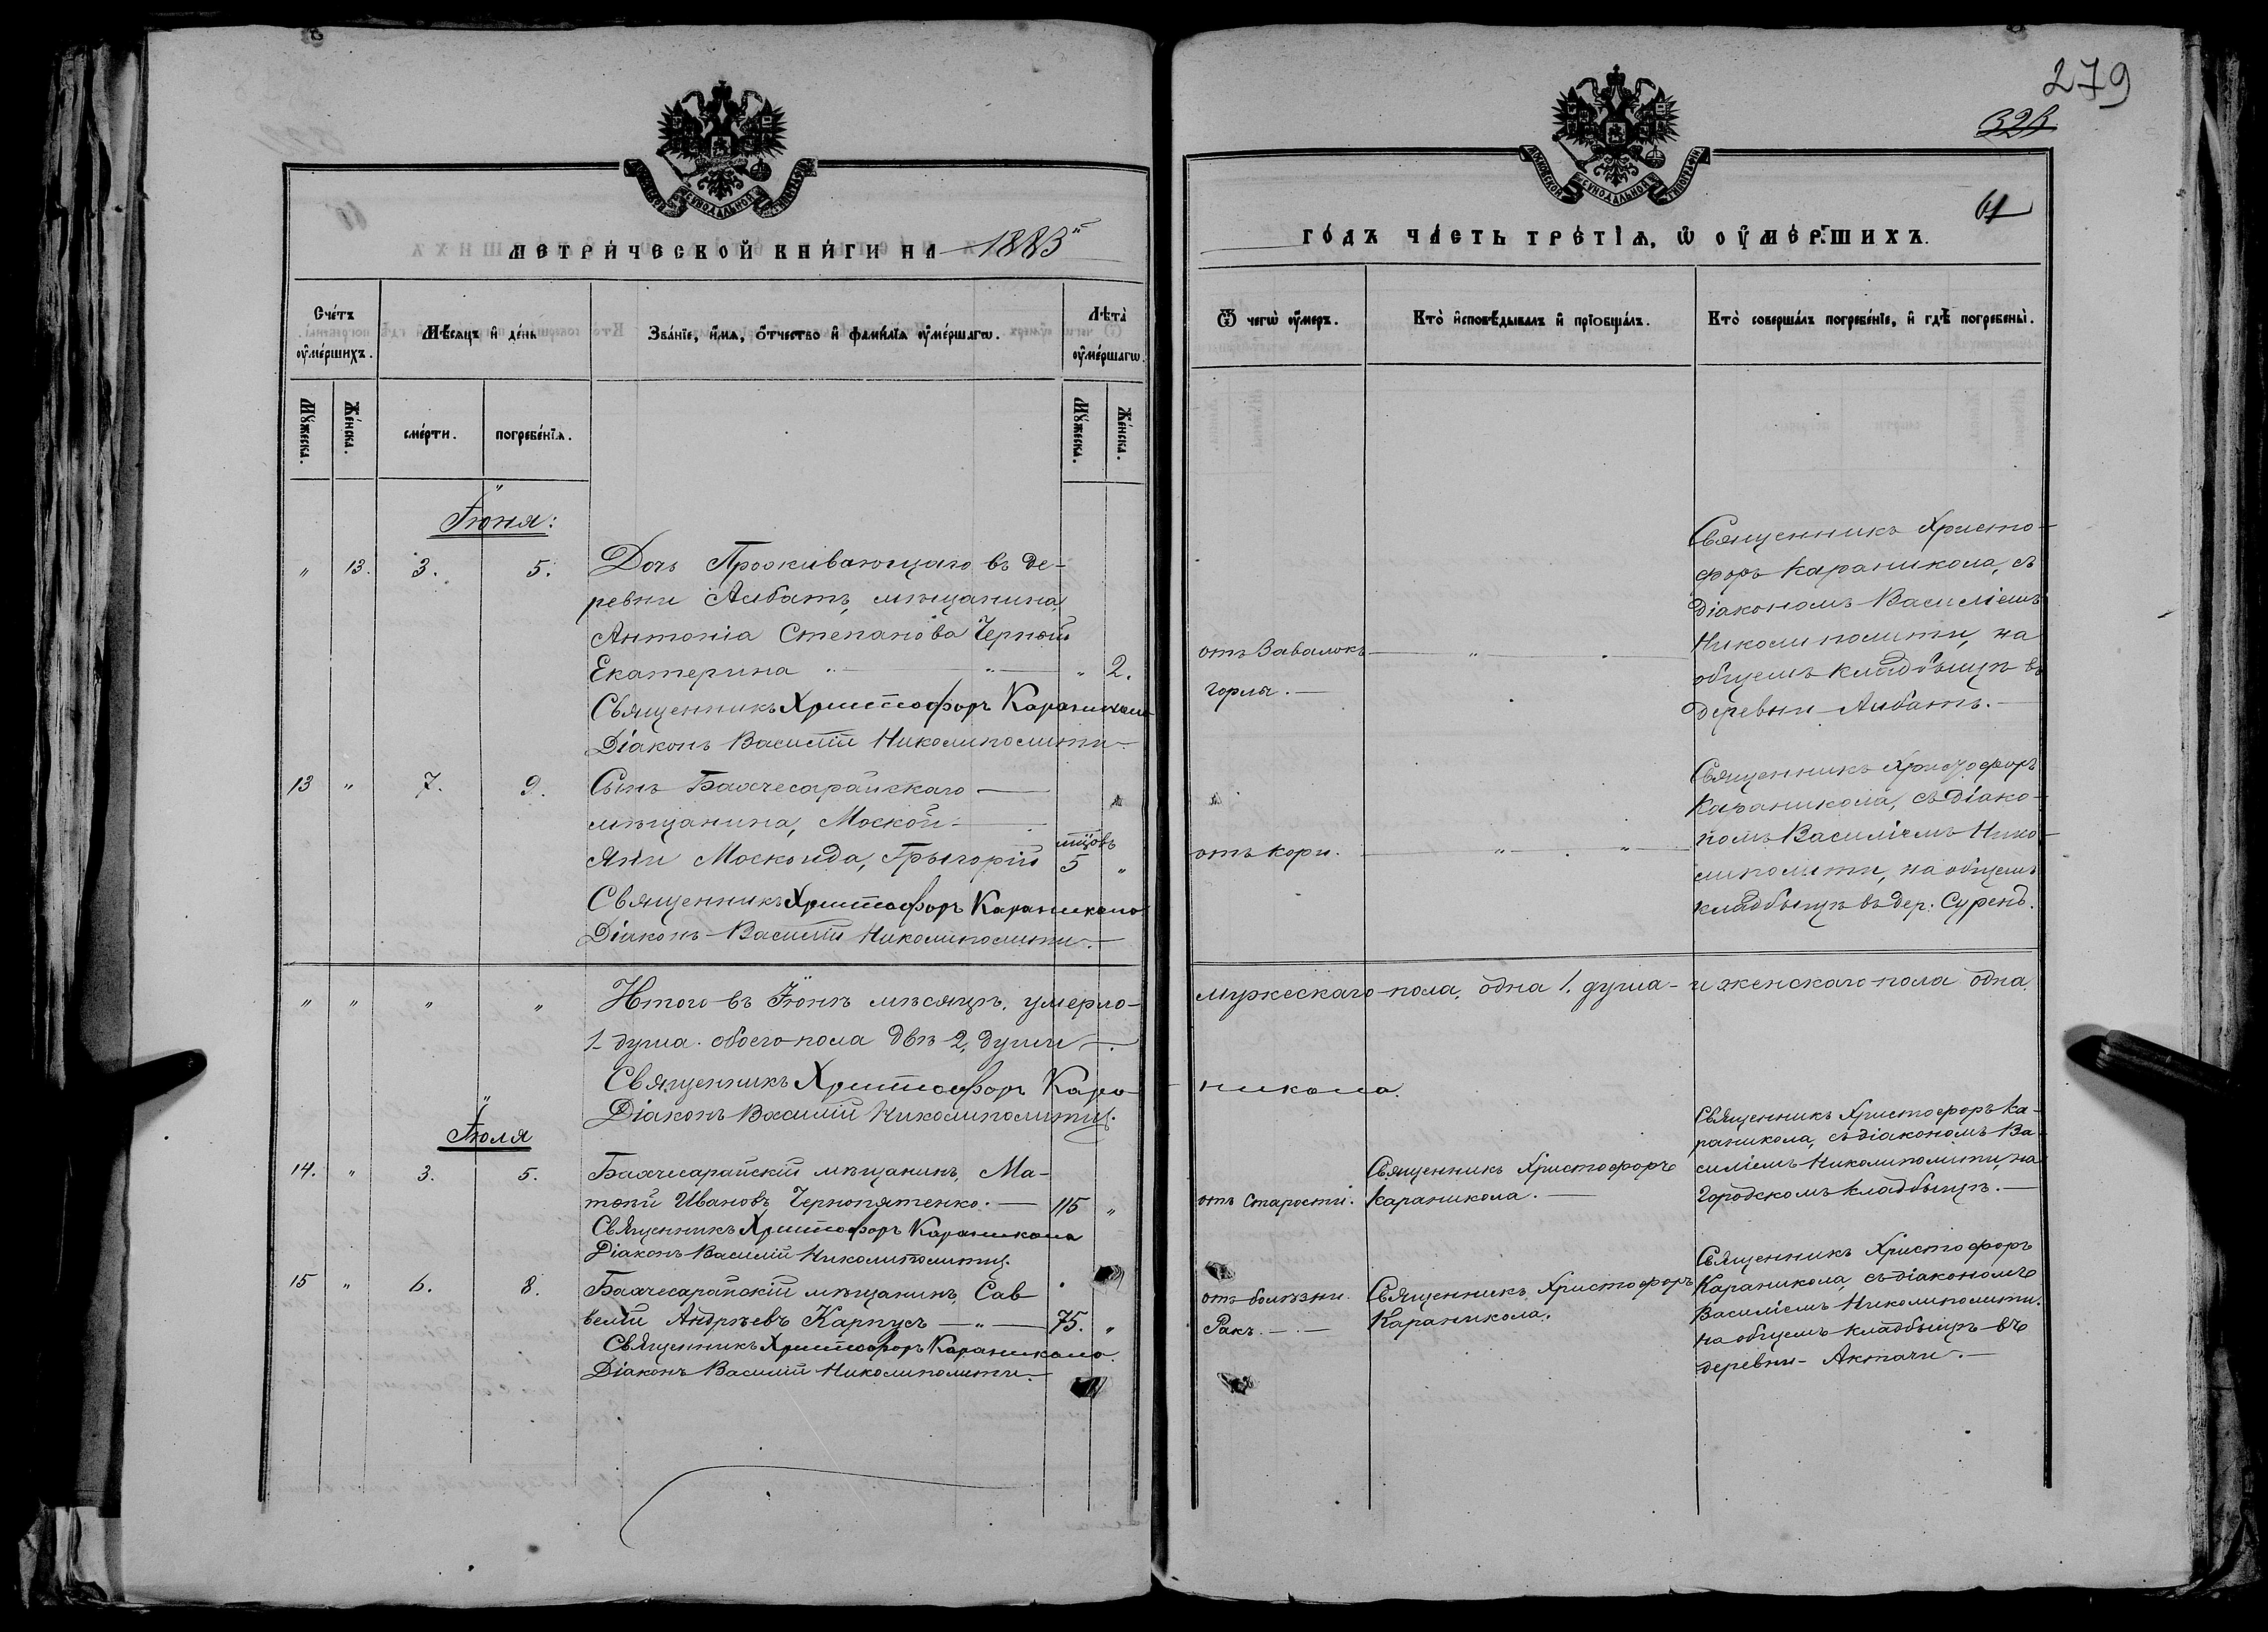 279
323
61
МОСКОВСКОЙ СѴНОДАЛЬНОЙ ТИПОГРАФІИ
МЕТРИ́ЧЕСКОЙ КНИ́ГИ НА 1883
ГО́ДЪ ЧА́СТЬ ТРЕ́ТІѦ, Ѡ ОУ҆МЕ́РШИХЪ.
Сче́тъ оу҆ме́ршихъ.
Мѣ́сяцъ и҆ де́нь
Зва́нїе, и҆́мѧ, ѻ҆́тчество и҆ фами́лїѧ оу҆ме́ршагѡ.
Лѣта̀ оу҆ме́ршагѡ.
Ѿ чегѡ̀ оу҆́меръ.
Кто̀ и҆сповѣ́дывалъ и҆ прїѻбща́лъ.
Кто̀ соверша́лъ погребе́нїе, и҆ гдѣ̀ погребены̀.
Мꙋ́жеска.
Же́нска.
сме́рти.
погребе́нїѧ.
Мꙋ́жеска.
Же́нска.
Іюня:
" 13. 3. 5. Дочь Проживающаго въ де-
ревни Албатъ, мѣщанина,
Антонія Степанова Черной
Екатерина " " " 2.
Священникъ Христофоръ Караникола
Діаконъ Василій Николиполити
отъ Завалокъ
горлы.
Священникъ Христо-
форъ Караникола, съ
Діакономъ Василіемъ
Николиполити, на
общемъ кладбыщѣ въ
деревни Албатъ.
13 " 7. 9. Сынъ Бахчесарайскаго
мѣщанина, Москои
Яни Москоида, Грыгорій мцовъ 5 "
Священникъ Христофоръ Караникола
Діаконъ Василій Николиполити.
отъ кори. " "
Священникъ Христофоръ
Караникола, съ діако-
номъ Василіемъ Нико-
липолити, на общемъ
кладбыщѣ въ дер. Сурень.
" " " " Итого въ Іюнѣ мѣсяцѣ, умерло мужескаго пола, одна 1. душа и женскаго пола одна
1 душа. обоего пола двѣ 2, души
Священникъ Христофоръ Караникола.
Діаконъ Василій Николиполити.
Іюля
14. " 3. 5. Бахчесарайскій мѣщанинъ, Ма-
тѳій Ивановъ Чернопятенко. 115 "
Священникъ Христофоръ Караникола
Діаконъ Василій Николиполити.
отъ Старости.
Священникъ Христофоръ
Караникола.
Священникъ Христофоръ Ка-
раникола, съ діакономъ Ва-
силіемъ Николиполити, на
Городскомъ кладбыщѣ.
15 " 6. 8. Бахчесарайскій мѣщанинъ, Сав
велій Андрѣевъ Карпусъ " 75. "
Священникъ Христофоръ Караникола.
Діаконъ Василій Николиполити.
отъ болѣзни
Ракъ.
Священникъ, Христофоръ
Караникола.
Священникъ Христофоръ
Караникола, съ діакономъ
Василіемъ Николиполити.
на общемъ кладбыщѣ въ
деревни Актачи.